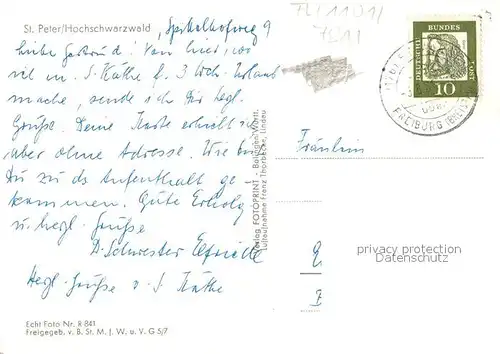 St. Peter/Hochschwarzwald
Spitalhofweg 9
liebe Gertrud! Von hier, wo
ich m. S. Käthe f. 3 Woch. Urlaub
mache, sende ich Dir herzl.
Grüße. Deine Karte erhielt ich
aber ohne Adresse. Wie
Du zu da Aufenthalt ge-
kommen. Gute Erholg
u. herzl. Grüße
D. Schwester Elfriede
Herzl. Grüße v. S. Käthe
Echt Foto Nr. R 841
Freigegeb. v. B. St. M. f. W. u. V. G 5/7
Verlag FOTOPRINT
Luftaufnahme Franz Thorbecke, Lindau
DEUTSCHE
BUNDES
POST
10
FREIBURG
Fräulein
privacy protection
Datenschutz